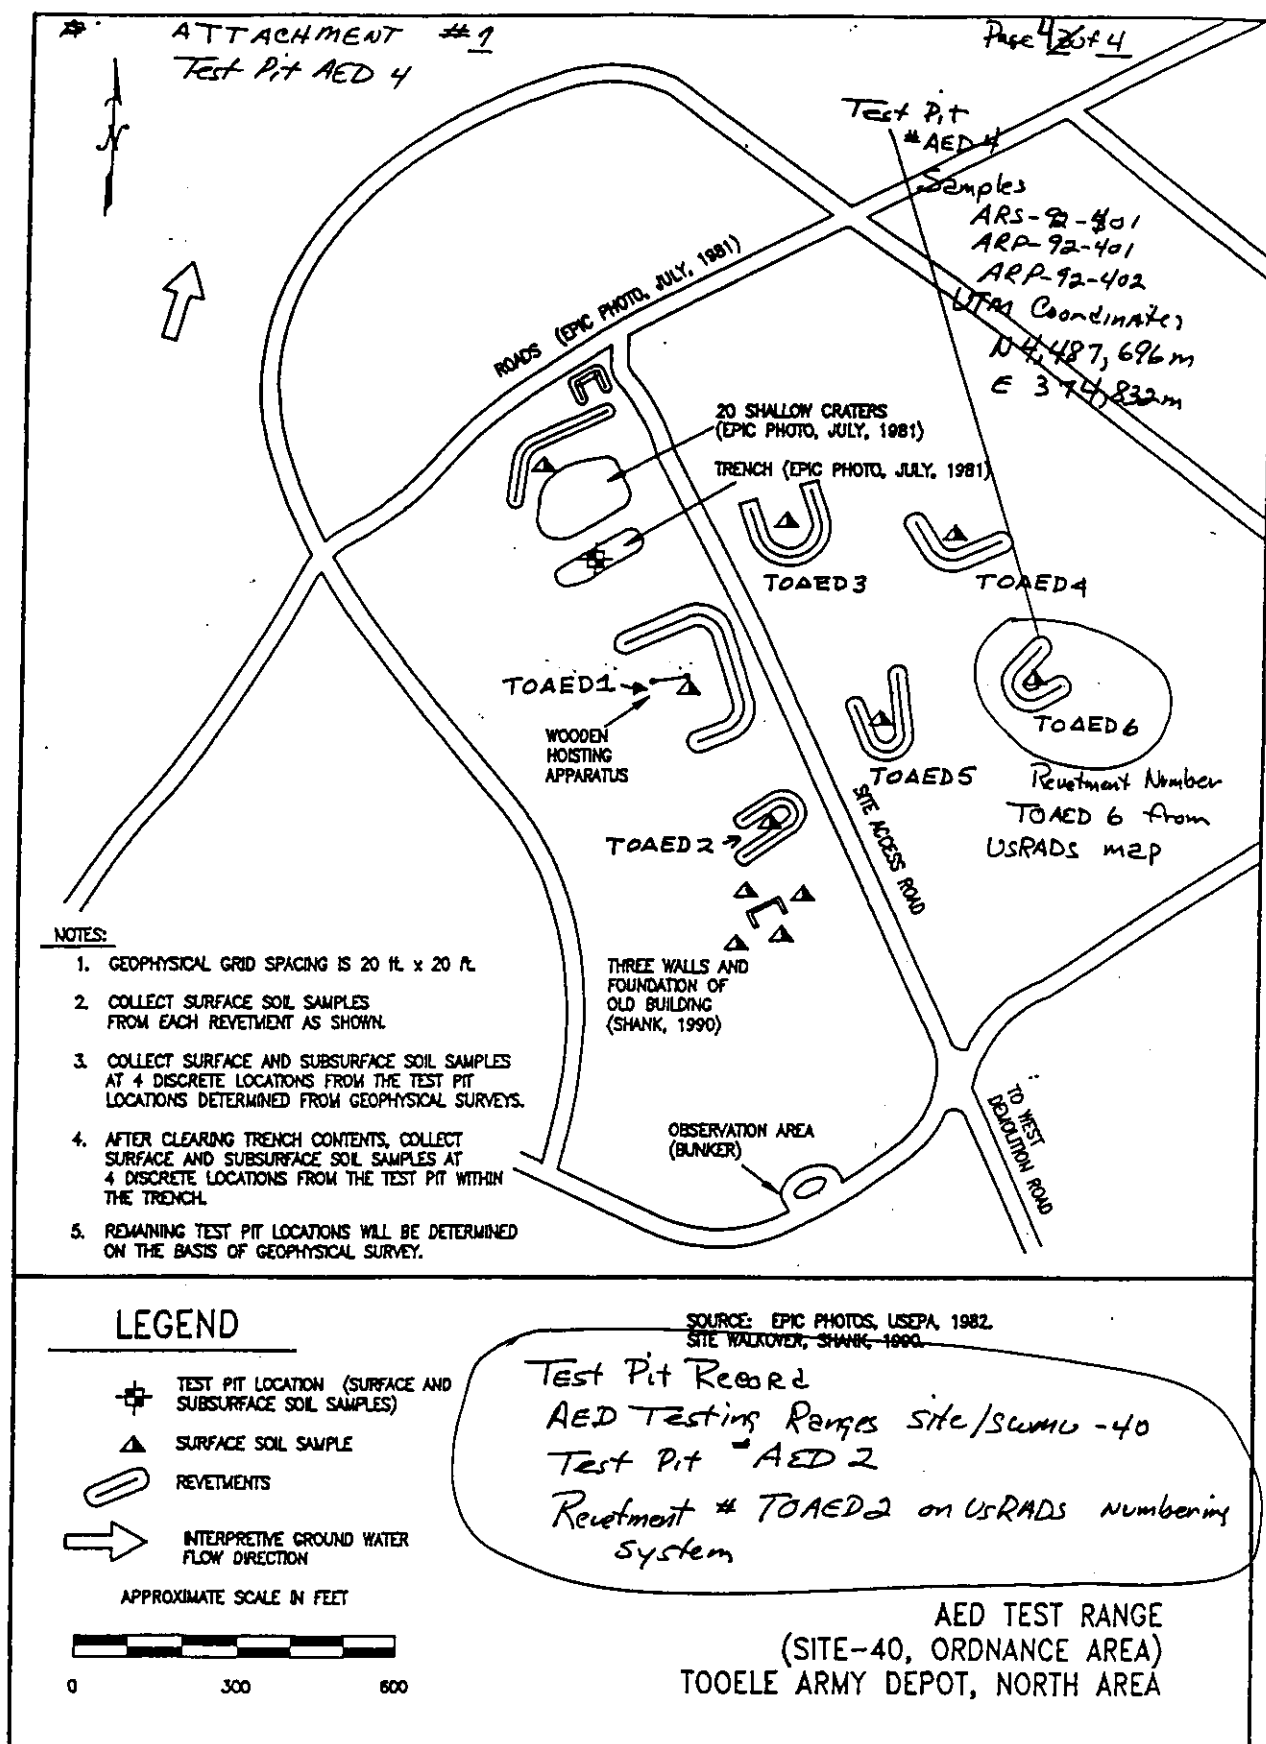 ATTACHMENT #1
Test Pit AED 4
Page 4 of 4
N
Test Pit
# AED 4
Samples
ARS-92-401
ARP-92-401
ARP-92-402
UTM Coordinates
N 4,487,696 m
E 374,832 m
ROADS (EPIC PHOTO, JULY, 1981)
20 SHALLOW CRATERS
(EPIC PHOTO, JULY, 1981)
TRENCH (EPIC PHOTO, JULY, 1981)
TOAED3
TOAED4
TOAED1
WOODEN
HOISTING
APPARATUS
TOAED6
TOAED5
Revetment Number
TOAED 6 from
USRADS map
TOAED2
SITE ACCESS ROAD
THREE WALLS AND
FOUNDATION OF
OLD BUILDING
(SHANK, 1990)
TO WEST
DEMOLITION ROAD
OBSERVATION AREA
(BUNKER)
NOTES:
1. GEOPHYSICAL GRID SPACING IS 20 ft. x 20 ft.
2. COLLECT SURFACE SOIL SAMPLES
FROM EACH REVETMENT AS SHOWN.
3. COLLECT SURFACE AND SUBSURFACE SOIL SAMPLES
AT 4 DISCRETE LOCATIONS FROM THE TEST PIT
LOCATIONS DETERMINED FROM GEOPHYSICAL SURVEYS.
4. AFTER CLEARING TRENCH CONTENTS, COLLECT
SURFACE AND SUBSURFACE SOIL SAMPLES AT
4 DISCRETE LOCATIONS FROM THE TEST PIT WITHIN
THE TRENCH.
5. REMAINING TEST PIT LOCATIONS WILL BE DETERMINED
ON THE BASIS OF GEOPHYSICAL SURVEY.
LEGEND
TEST PIT LOCATION (SURFACE AND
SUBSURFACE SOIL SAMPLES)
SURFACE SOIL SAMPLE
REVETMENTS
INTERPRETIVE GROUND WATER
FLOW DIRECTION
APPROXIMATE SCALE IN FEET
0 300 600
SOURCE: EPIC PHOTOS, USEPA, 1982.
SITE WALKOVER, SHANK, 1990.
Test Pit Record
AED Testing Ranges site/SWMU-40
Test Pit - AED 2
Revetment # TOAED2 on USRADS numbering
system
AED TEST RANGE
(SITE-40, ORDNANCE AREA)
TOOELE ARMY DEPOT, NORTH AREA